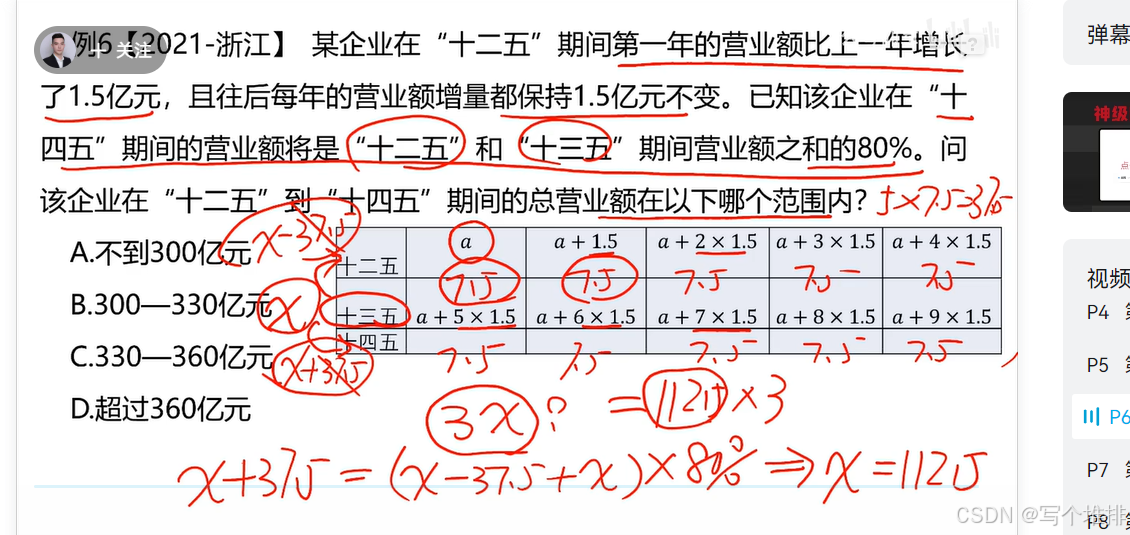 例6【2021-浙江】 某企业在“十二五”期间第一年的营业额比上一年增长
+ 关注
了1.5亿元，且往后每年的营业额增量都保持1.5亿元不变。已知该企业在“十
四五”期间的营业额将是“十二五”和“十三五”期间营业额之和的80%。问
该企业在“十二五”到“十四五”期间的总营业额在以下哪个范围内？ 5×7.5=37.5
A.不到300亿元
B.300—330亿元
C.330—360亿元
D.超过360亿元
x-37.5
x
x+37.5
十二五 a a + 1.5 a + 2 × 1.5 a + 3 × 1.5 a + 4 × 1.5
7.5 7.5 7.5 7.5 7.5
十三五 a + 5 × 1.5 a + 6 × 1.5 a + 7 × 1.5 a + 8 × 1.5 a + 9 × 1.5
十四五
7.5 7.5 7.5 7.5 7.5
3x? =112.5×3
x+37.5=(x-37.5+x)×80%⇒x=112.5
弹幕
神级
视频
P4
P5
P6
P7
P8
CSDN @写个堆排